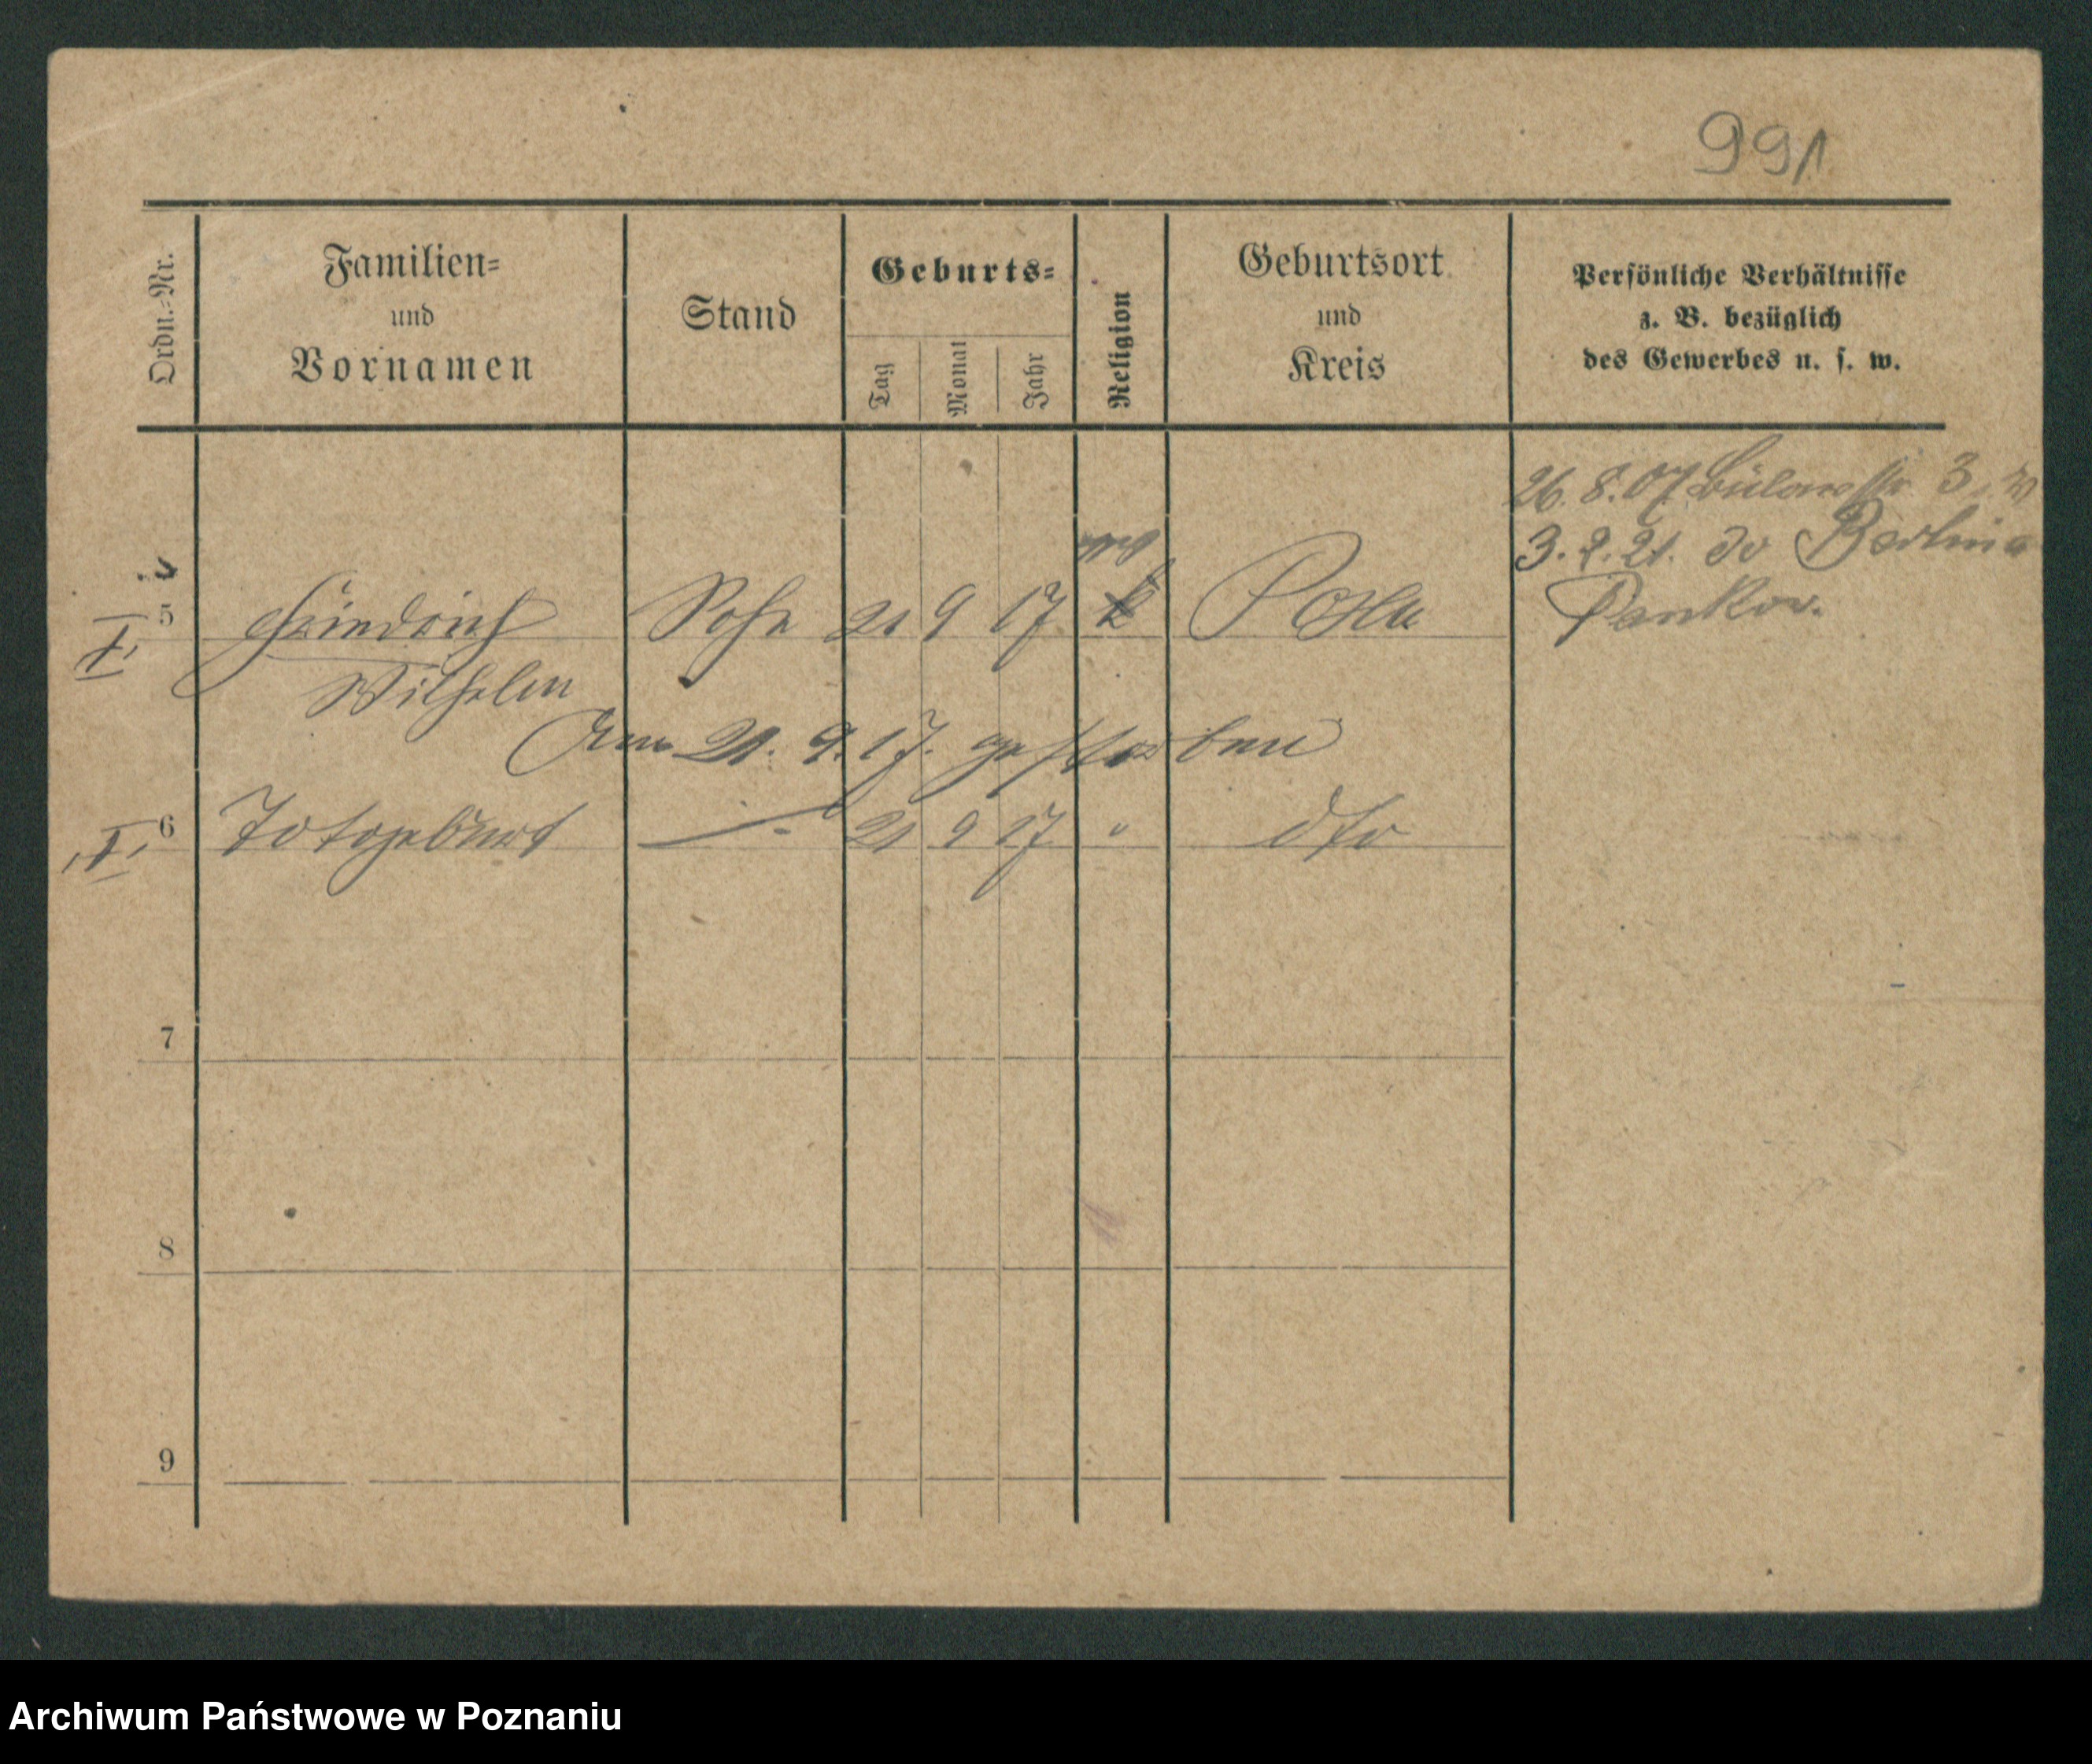 991
Ordn.-Nr.
Familien-
und
Vornamen
Stand
Geburts-
Tag
Monat
Jahr
Religion
Geburtsort
und
Kreis
Persönliche Verhältnisse
z. B. bezüglich
des Gewerbes u. s. w.
26. 8. 07 Bülowstr. 3
3. 2. 21. do Berlin
Pankow.
5 Friedrich Sohn 21 9 17 k Posen
Wilhelm
Am 21. 9. 17. gestorben
6 Totgeburt 21 9 17 " dto
7
8
9
Archiwum Państwowe w Poznaniu